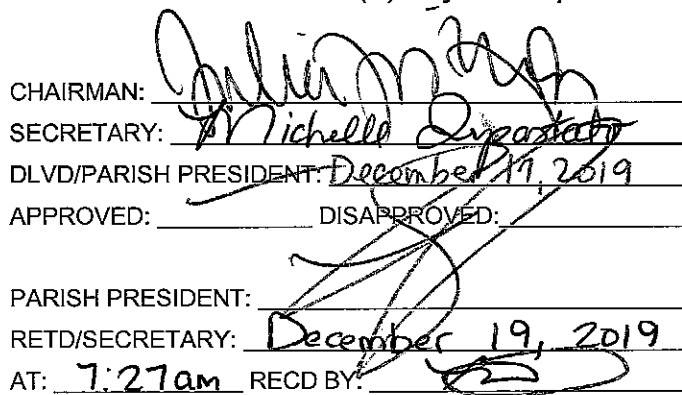 CHAIRMAN:
SECRETARY: Michelle
DLVD/PARISH PRESIDENT: December 17, 2019
APPROVED: DISAPPROVED:
PARISH PRESIDENT:
RETD/SECRETARY: December 19, 2019
AT: 7:27am RECD BY: